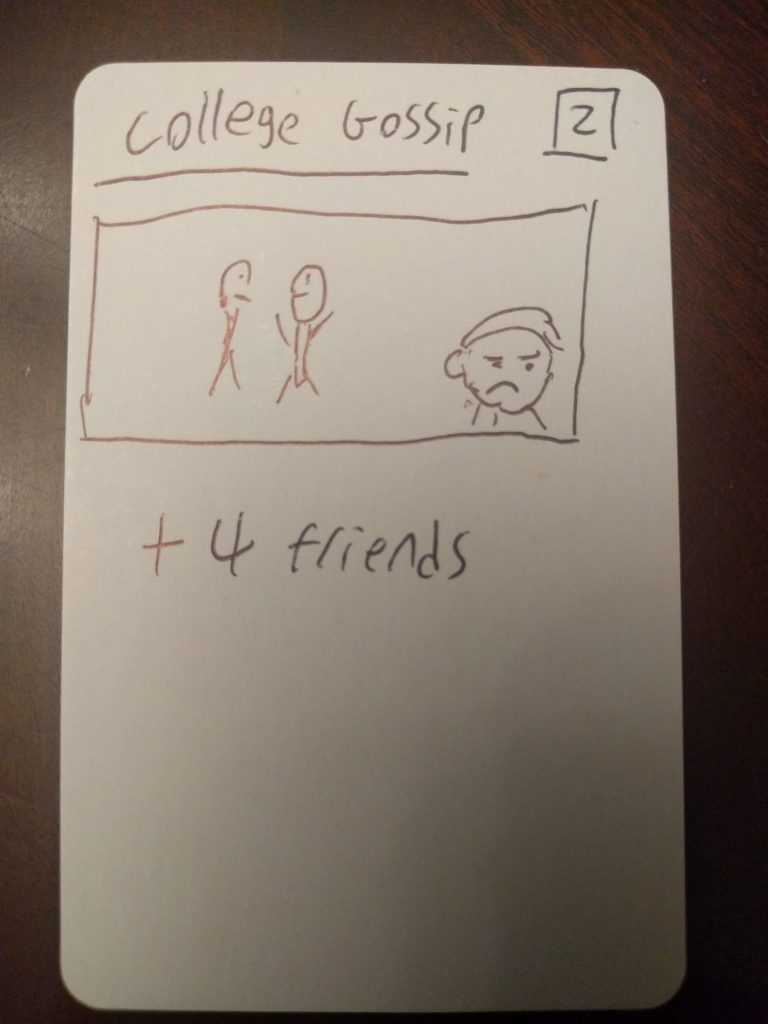 College Gossip 2
+4 friends